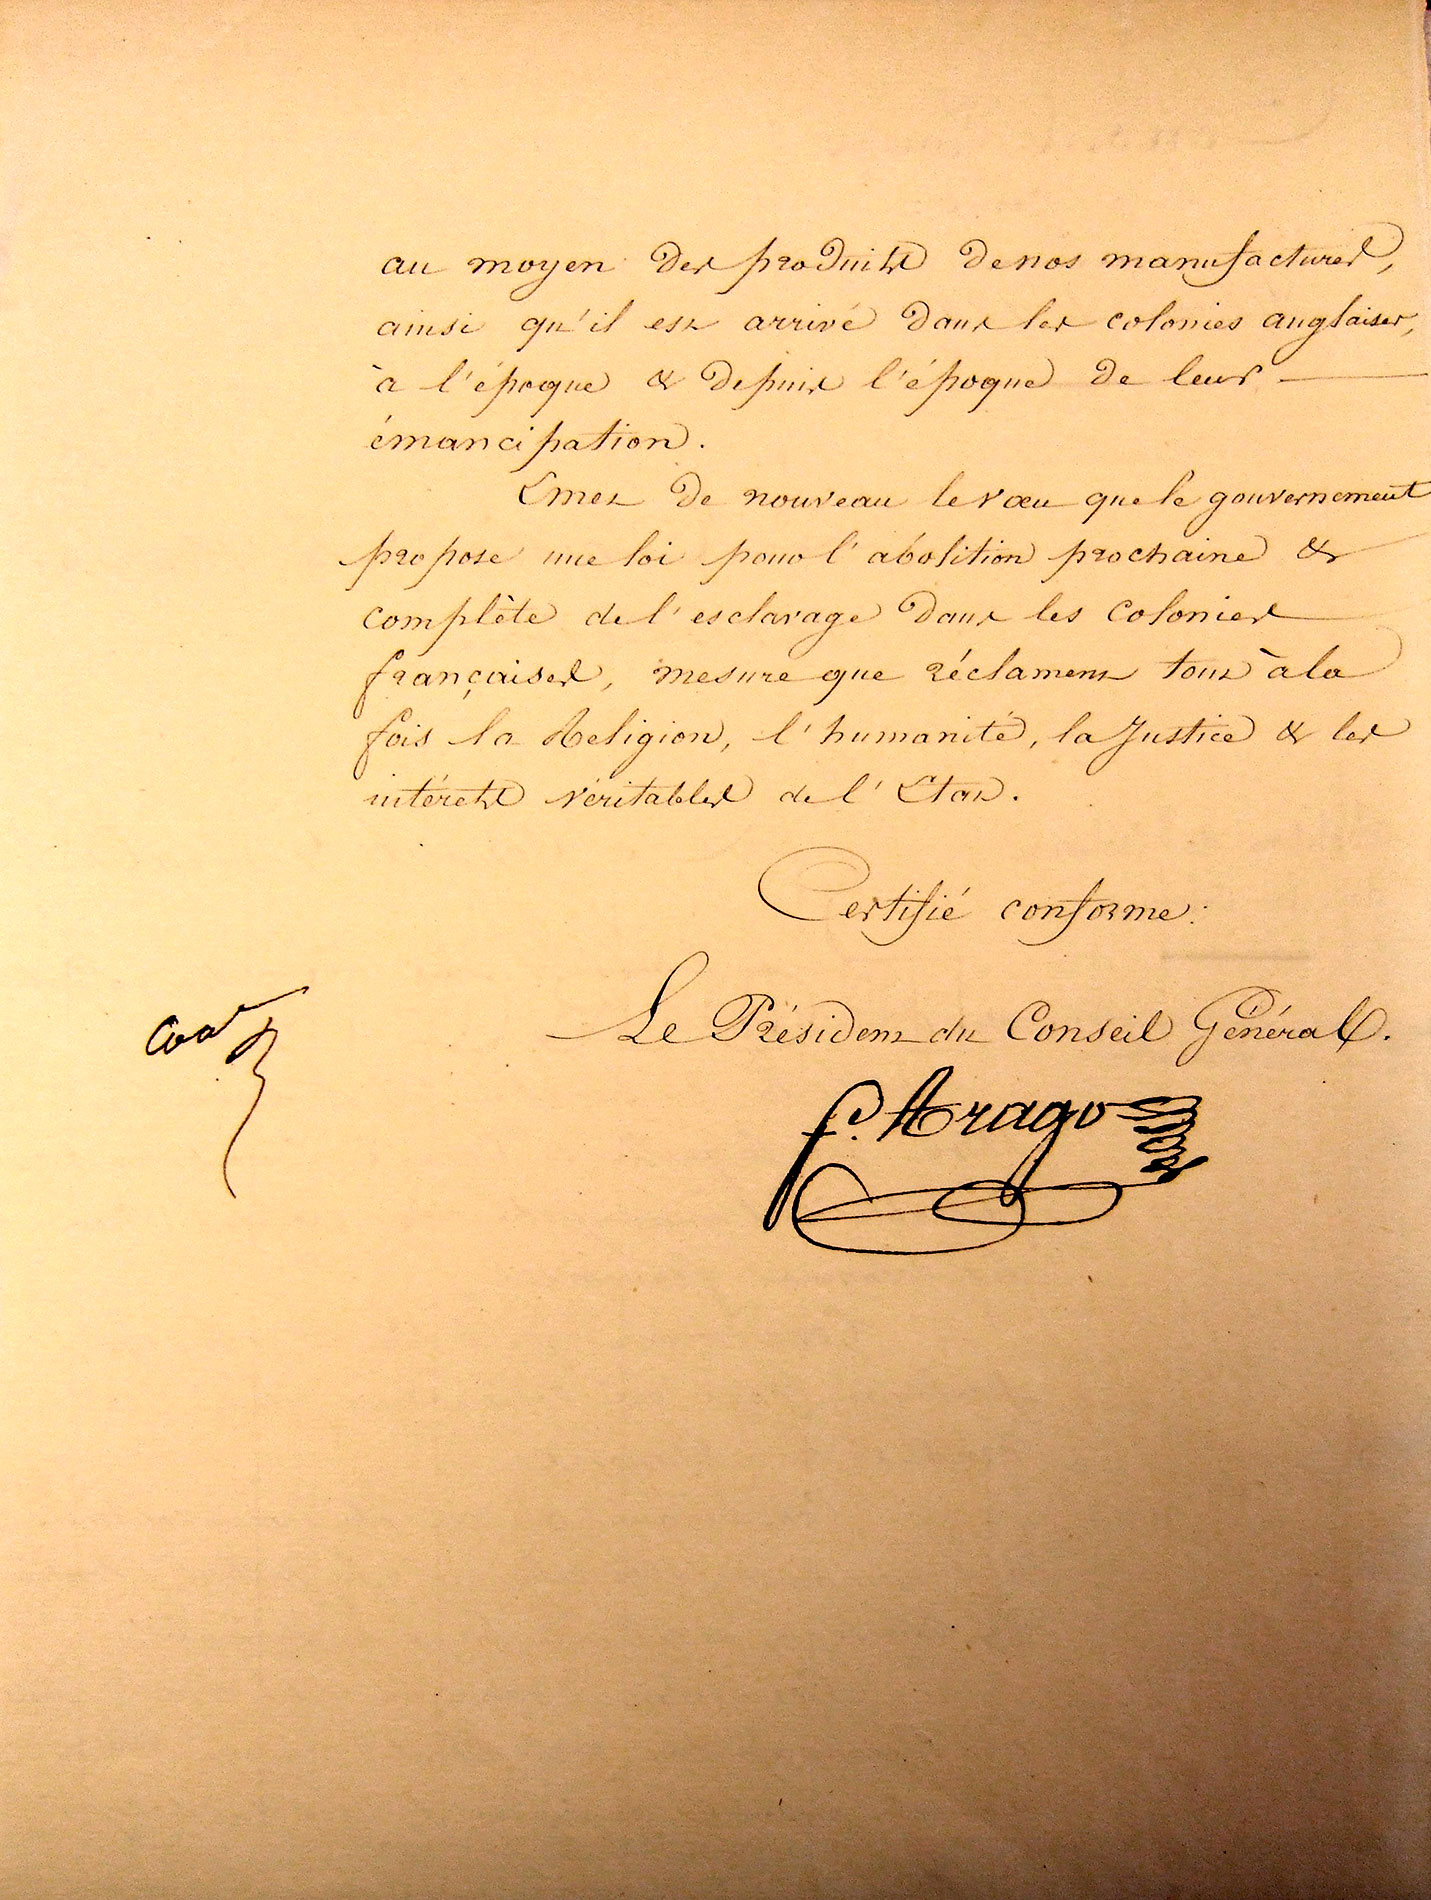 au moyen des produits de nos manufactures,
ainsi qu'il est arrivé dans les colonies anglaises,
à l'époque & depuis l'époque de leur
émancipation.
Emet de nouveau le vœu que le gouvernement
propose une loi pour l'abolition prochaine &
complète de l'esclavage dans les colonies
françaises, mesure que réclament tout à la
fois la Religion, l'humanité, la Justice & les
intérets véritables de l'Etat.
Certifié conforme:
Le Président du Conseil Général.
f. Arago